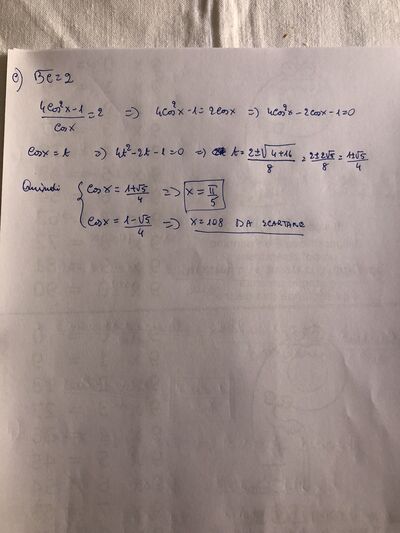 c) BC=2
(4cos²x-1)/cosx = 2 => 4cos²x-1=2cosx => 4cos²x-2cosx-1=0
cosx=t => 4t²-2t-1=0 => t=(2±√(4+16))/8 = (2±2√5)/8 = (1±√5)/4
Quindi { cosx = (1+√5)/4 => x=π/5
cosx = (1-√5)/4 => x=108 DA SCARTARE